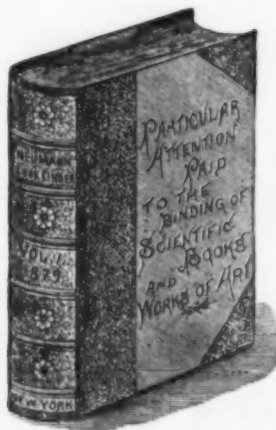 NEUMANN
VOL. I.
1879.
NEW YORK
PARTICULAR
ATTENTION
PAID
TO THE
BINDING OF
SCIENTIFIC
BOOKS
AND
WORKS OF ART